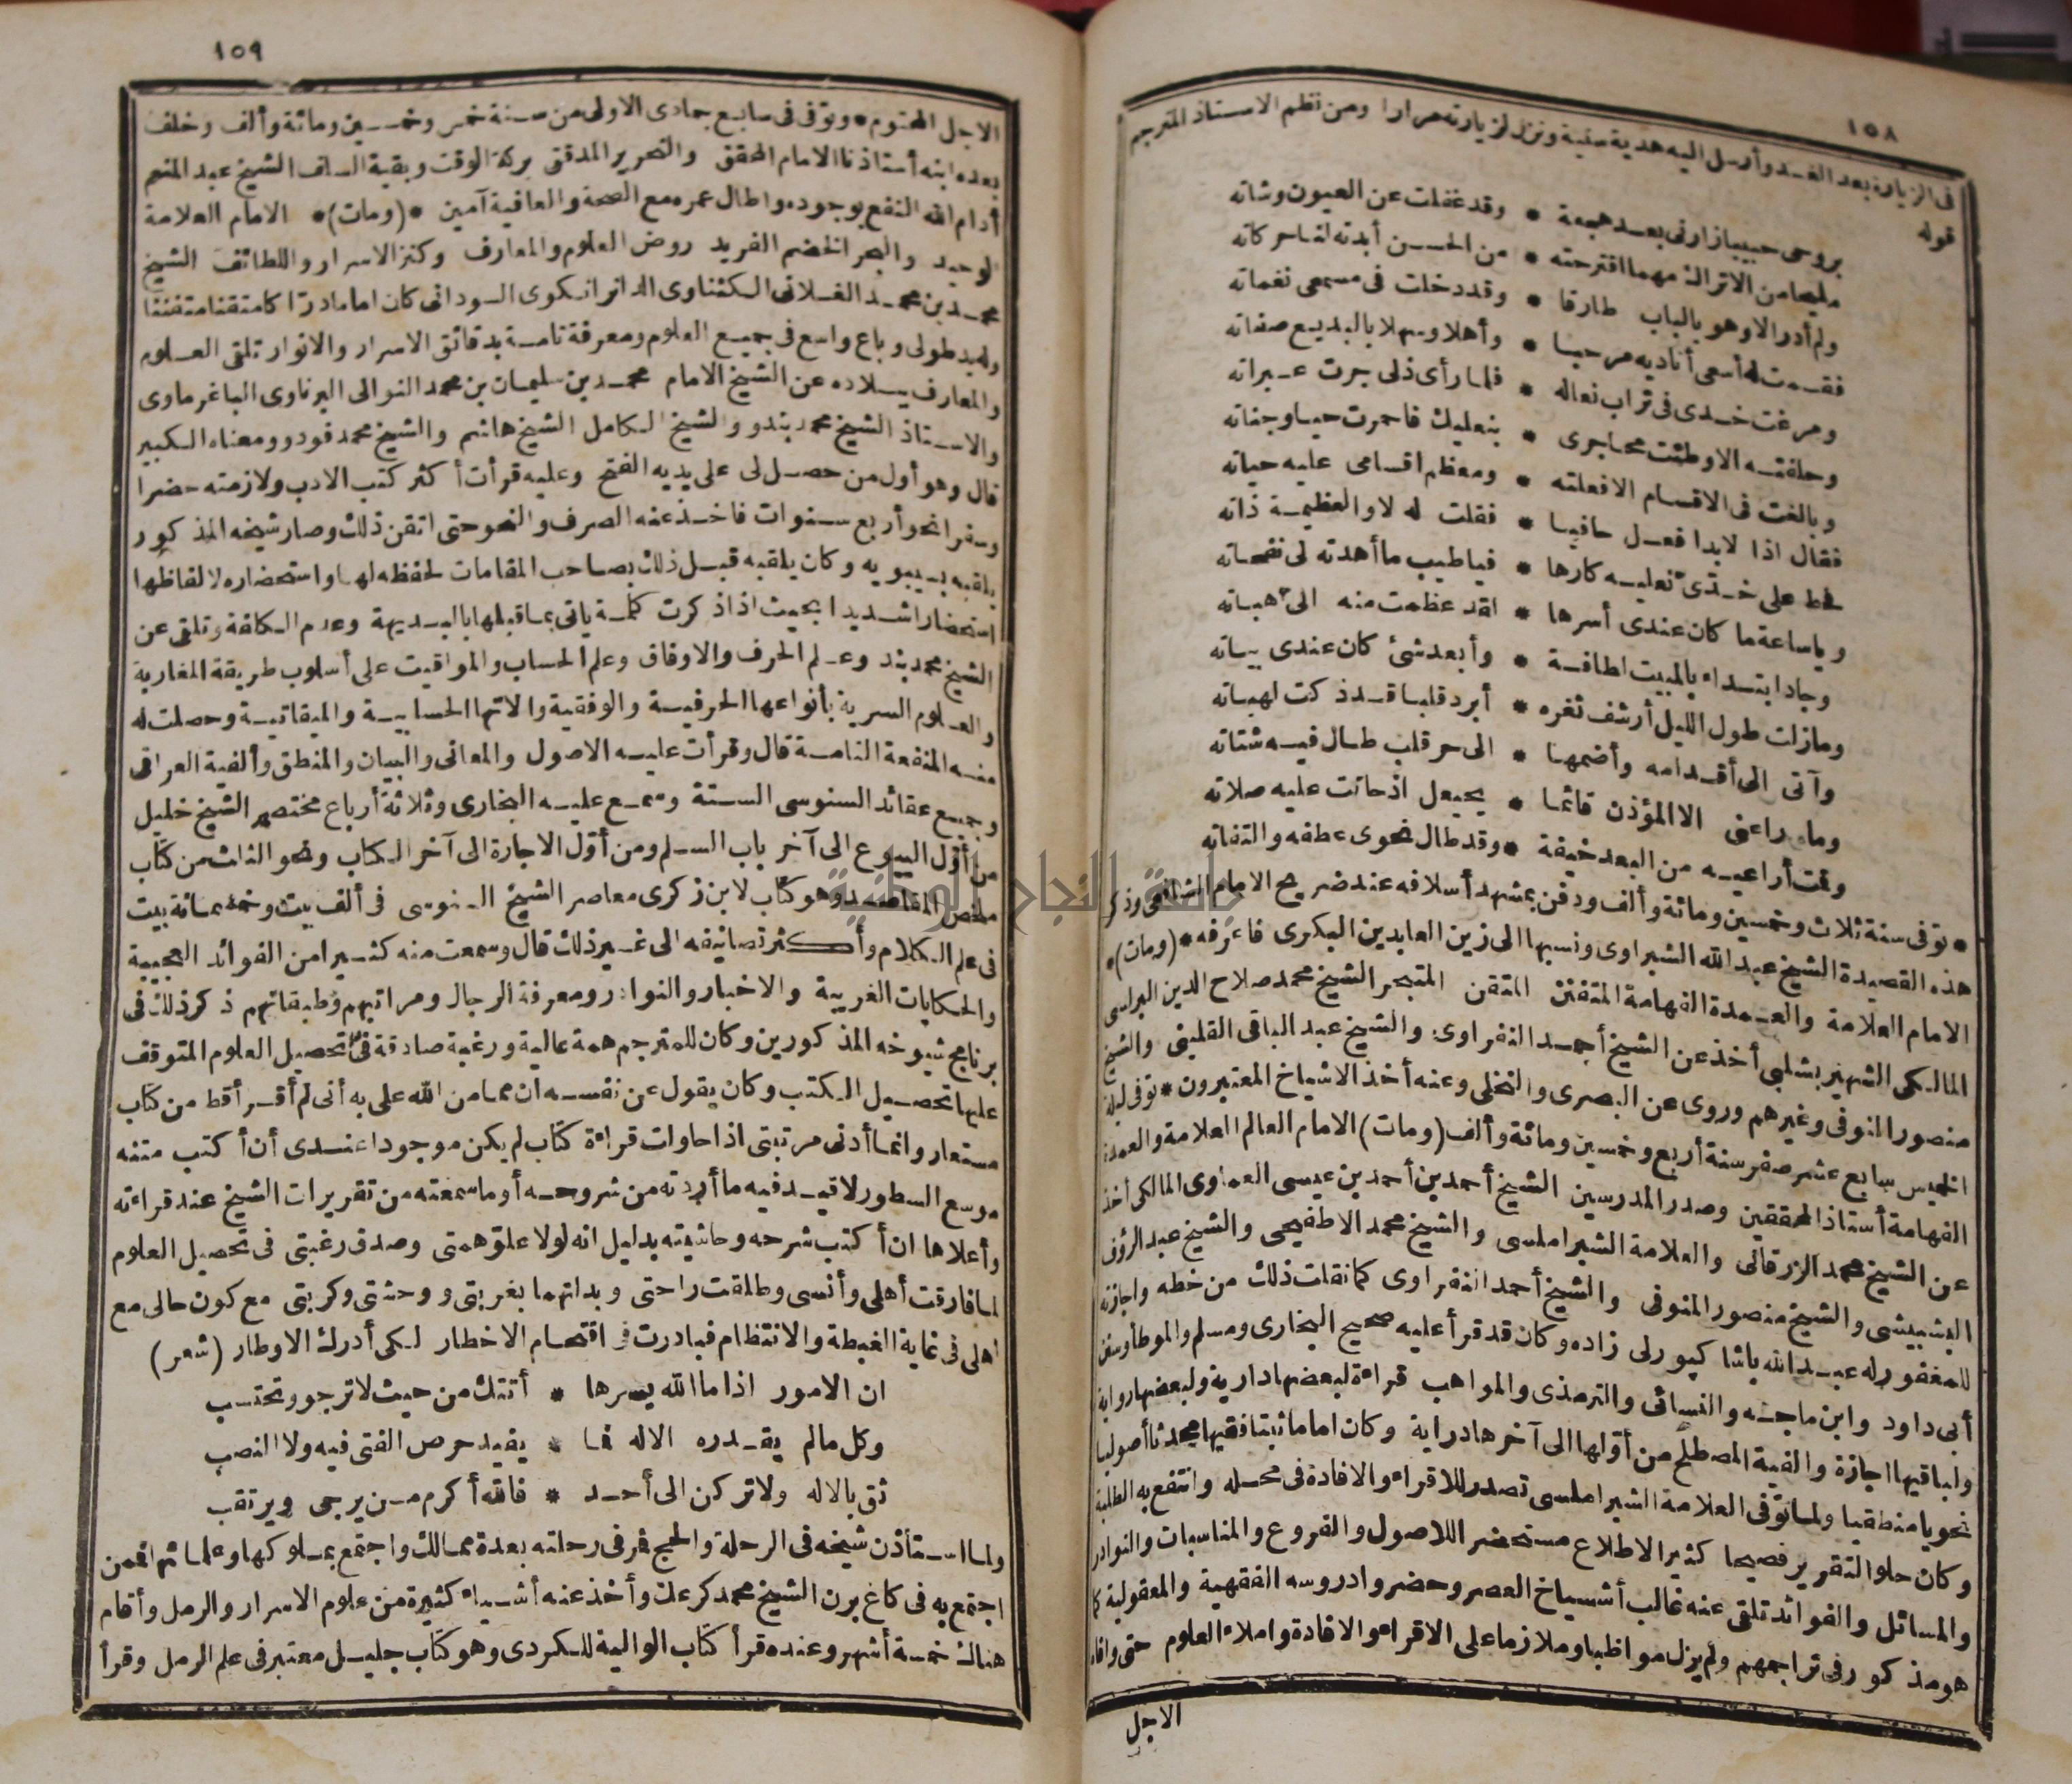 ١٥٨
فى الزيارة بعد الغد وأرسل اليه هدية سنية ونزل لزيارته مرارا ومن نظم الاستاذ المترجم
قوله
بروحى حبيبا زارنى بعد هجعة * وقد غفلت عن العيون وشاته
مليحا من الاتراك مهما اقترحته * من الحسن أبدته لنا حركاته
ولم أدر الا وهو بالباب طارقا * وقد دخلت فى مسمعى نغماته
فقمت له أسعى أناديه مرحبا * وأهلا وسهلا بالبديع صفاته
ومرغت خدى فى تراب نعاله * فلما رأى ذلى جرت عبراته
وحلفته الا وطئت محاجرى * بنعليك فاحمرت حيا وجناته
وبالغت فى الاقسام الا فعلته * ومعظم اقسامى عليه حياته
فقال اذا لابدا فعل حافيا * فقلت له لا والعظيمة ذاته
فحط على خدى نعليه كارها * فيا طيب ما أهدته لى نفحاته
ويا ساعة ما كان عندى أسرها * لقد عظمت منه الى هباته
وجاد ابتداء بالمبيت لطافة * وأبعد شئ كان عندى بياته
ومازلت طول الليل أرشف ثغره * أبرد قلبا قد ذكت لهباته
وآتى الى أقدامه وأضمها * الى حر قلب طال فيه شتاته
وما راعنى الا المؤذن قائما * يحيعل اذ حانت عليه صلاته
وقمت أراعيه من البعد خيفة * وقد طال نحوى عطفه والتفاته
* توفى سنة ثلاث وخمسين ومائة وألف ودفن بمشهد أسلافه عند ضريح الامام الشافعى وذكر
هذه القصيدة الشيخ عبد الله الشبراوى ونسبها الى زين العابدين البكرى فاعرفه * (ومات) *
الامام العلامة والعمدة الفهامة المتفنن المتقن المتبحر الشيخ محمد صلاح الدين البرلسى
المالكى الشهير بشلبى أخذ عن الشيخ أحمد النفراوى والشيخ عبد الباقى القلينى والشيخ
منصور المنوفى وغيرهم وروى عن البصرى والنخلى وعنه أخذ الاشياخ المعتبرون * توفى ليلة
الخميس سابع عشر صفر سنة أربع وخمسين ومائة وألف (ومات) الامام العالم العلامة والعمدة
الفهامة أستاذ المحققين وصدر المدرسين الشيخ أحمد بن أحمد بن عيسى العماوى المالكى أخذ
عن الشيخ محمد الزرقانى والعلامة الشبراملسى والشيخ محمد الاطفيحى والشيخ عبد الرؤف
البشبيشى والشيخ منصور المنوفى والشيخ أحمد النفراوى كما نقلت ذلك من خطه واجازته
للمغفور له عبد الله باشا كپورلى زاده وكان قد قرأ عليه صحيح البخارى ومسلم والموطأ وسنن
أبى داود وابن ماجه والنسائى والترمذى والمواهب قراءة لبعضها دراية ولبعضها رواية
ولباقيها اجازة وألفية المصطلح من أولها الى آخرها دراية وكان اماما ثبتا فقيها محدثا أصوليا
نحويا منطقيا ولما توفى العلامة الشبراملسى تصدر للاقراء والافادة فى محله وانتفع به الطلبة
وكان حلو التقرير فصيحا كثير الاطلاع مستحضرا للاصول والفروع والمناسبات والنوادر
والمسائل والفوائد تلقى عنه غالب أشياخ العصر وحضروا دروسه الفقهية والمعقولية كما
هو مذكور فى تراجمهم ولم يزل مواظبا وملازما على الاقراء والافادة واملاء العلوم حتى وافاه
الاجل
١٥٩
الاجل المحتوم * وتوفى فى سابع جمادى الاولى من سنة خمس وخمسين ومائة وألف وخلف
بعده ابنه أستاذنا الامام المحقق والتحرير المدقق بركة الوقت وبقية السلف الشيخ عبد المنعم
أدام الله النفع بوجوده وأطال عمره مع الصحة والعافية آمين * (ومات) * الامام العلامة
الوحيد والبحر الخضم الفريد روض العلوم والمعارف وكنز الاسرار واللطائف الشيخ
محمد بن محمد الغلانى الكثناوى الدانرانكوى السودانى كان اماما دراكا متقنا متفننا
وله يد طولى وباع واسع فى جميع العلوم ومعرفة تامة بدقائق الاسرار والانوار تلقى العلوم
والمعارف ببلاده عن الشيخ الامام محمد بن سليمان بن محمد النوالى البرناوى الباغرماوى
والاستاذ الشيخ محمد بندو والشيخ الكامل الشيخ هاشم والشيخ محمد فودو ومعناه الكبير
قال وهو أول من حصل لى على يديه الفتح وعليه قرأت أكثر كتب الادب ولازمته حضرا
وسفرا نحو أربع سنوات فاخذ عنه الصرف والنحو حتى اتقن ذلك وصار شيخه المذكور
يلقبه بسيبويه وكان يلقبه قبل ذلك بصاحب المقامات لحفظه لها واستحضاره لالفاظها
استحضارا شديدا بحيث اذا ذكرت كلمة ياتى بما قبلها بالبديهة وعدم الكلفة وتلقى عن
الشيخ محمد بندو علم الحرف والاوفاق وعلم الحساب والمواقيت على أسلوب طريقة المغاربة
والعلوم السرية بأنواعها الحرفية والوفقية والاتها الحسابية والميقاتية وحصلت له
منه المنفعة التامة قال وقرأت عليه الاصول والمعانى والبيان والمنطق وألفية العراقى
وجميع عقائد السنوسى الستة وسمع عليه البخارى وثلاثة أرباع مختصر الشيخ خليل
من أول البيوع الى آخر باب السلم ومن أول الاجارة الى آخر الكتاب ونحو الثلث من كتاب
ملخص المقاصد وهو كتاب لابن زكرى معاصر الشيخ السنوسى فى ألف بيت وخمسمائة بيت
فى علم الكلام وأكثر تصانيفه الى غير ذلك قال وسمعت منه كثيرا من الفوائد العجيبة
والحكايات الغريبة والاخبار والنوادر ومعرفة الرجال ومراتبهم وطبقاتهم ذكر ذلك فى
برنامج شيوخه المذكورين وكان للمترجم همة عالية ورغبة صادقة فى تحصيل العلوم المتوقف
عليها تحصيل الكتب وكان يقول عن نفسه ان مما من الله على به أنى لم أقرأ قط من كتاب
مستعار وانما أدنى مرتبتى اذا حاولت قراءة كتاب لم يكن موجودا عندى أن أكتب متنه
موسع السطور لاقيد فيه ما أردته من شروحه أو ما سمعته من تقريرات الشيخ عند قراءته
وأعلاها ان أكتب شرحه وحاشيته بدليل انه لولا علو همتى وصدق رغبتى فى تحصيل العلوم
لما فارقت أهلى وأنسى وطلقت راحتى وبدلتهما بغربتى ووحشتى وكربتى مع كون حالى مع
أهلى فى غاية الغبطة والانتظام فبادرت فى اقتحام الاخطار لكى أدرك الاوطار (شعر)
ان الامور اذا ما الله يسرها * أتتك من حيث لا ترجو وتحتسب
وكل ما لم يقدره الاله فما * يفيد حرص الفتى فيه ولا النصب
ثق بالاله ولا تركن الى أحد * فالله أكرم من يرجى ويرتقب
ولما استأذن شيخه فى الرحلة والحج فر فى رحلته بعدة ممالك واجتمع بملوكها وعلمائها فممن
اجتمع به فى كاغ برن الشيخ محمد كرعك وأخذ عنه أشياء كثيرة من علوم الاسرار والرمل وأقام
هناك خمسة أشهر وعنده قرأ كتاب الوالية للكردى وهو كتاب جليل معتبر فى علم الرمل وقرأ
جامعة النجاح الوطنية